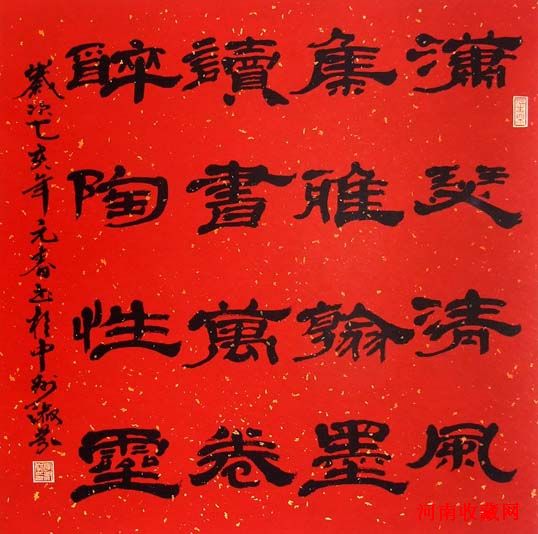 瀟瑟清風
集雅翰墨
讀書萬卷
醉陶性靈
歲次乙亥年元春書於中州
河南收藏网